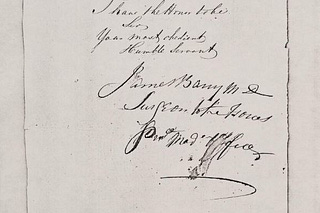 I have the Honor to be
Sir
Your most obedient
Humble Servant
James Barry MD
Surgeon to the Forces
Prin.l Med.l Officer